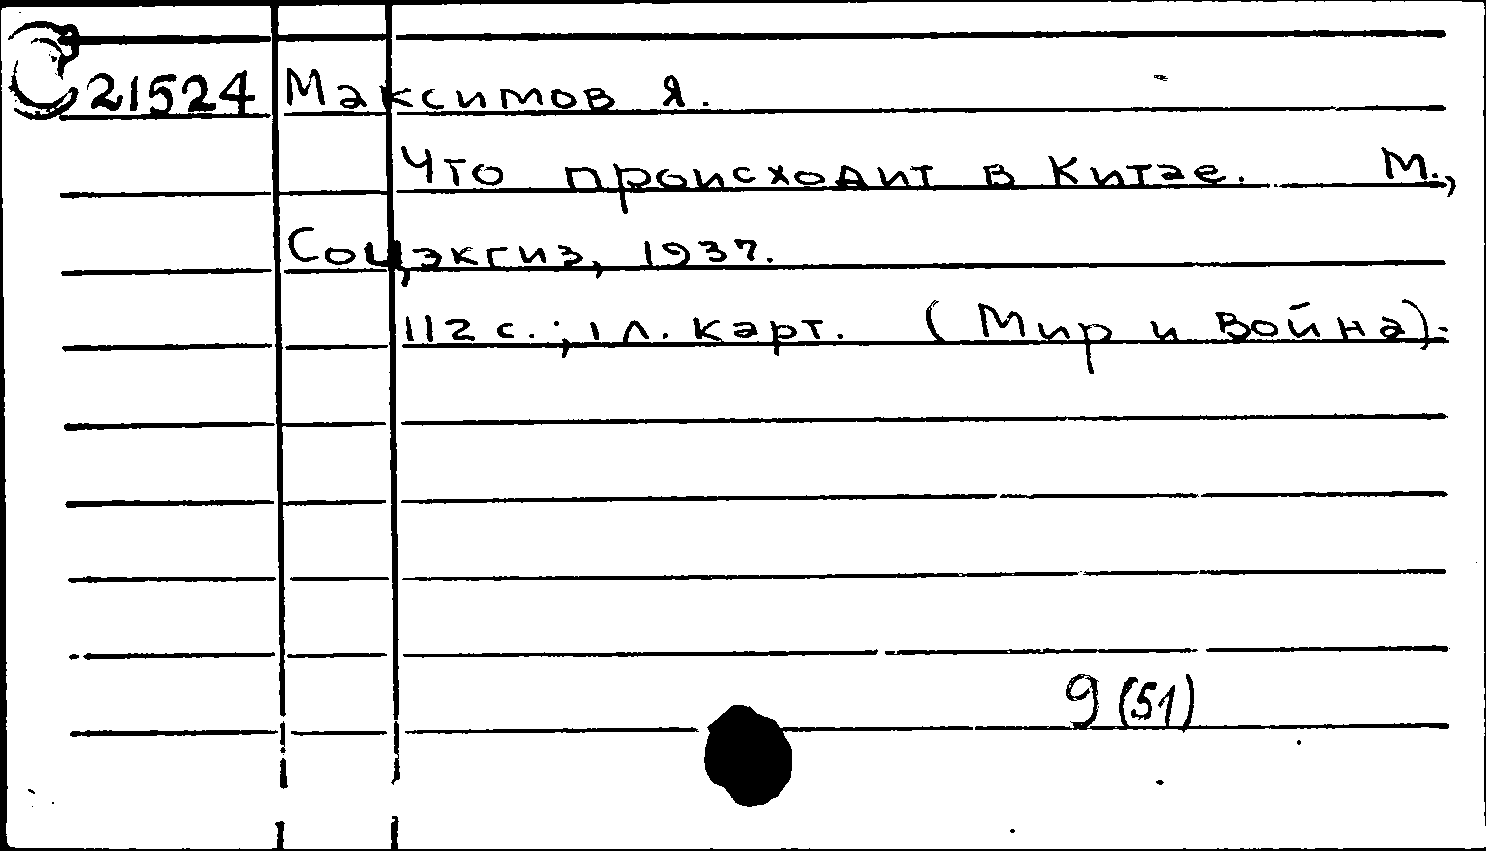 С 21524 Максимов Я.
Что происходит в Китае. М.,
Соцэкгиз, 1937.
112 с.; 1 л. карт. (Мир и война).
9(51)